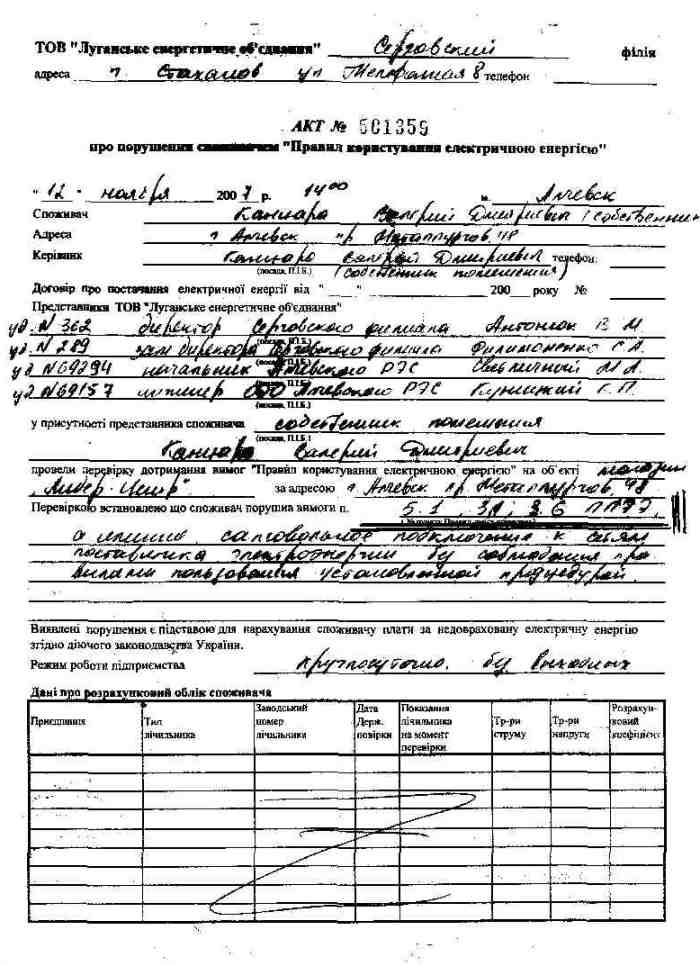 ТОВ "Луганське енергетичне об'єднання" філія
адреса г. Стаханов ул 8 телефон
АКТ № 501359
про порушення споживачем "Правил користування електричною енергією"
" 12 " ноября 2007 р. 14 00 м. Алчевск
Споживач Валерий Дмитриевич (собственник
Адреса г Алчевск пр Металлургов, 48
Керівник Валерий Дмитриевич телефон:
(посада, П.І.Б.) (собственник помещения)
Договір про постачання електричної енергії від " " 200 року №
Представники ТОВ "Луганське енергетичне об'єднання"
уд. N 362 директор филиала Антонюк В М.
уд. N 289 зам директора филиала Филимоненко С.А.
(посада, П.І.Б.)
уд N69294 начальник Алчевского РЭС
(посада, П.І.Б.)
уд N69157 инженер Алчевского РЭС
(посада, П.І.Б.)
у присутності представника споживача собственник помещения
(посада, П.І.Б.)
Валерий Дмитриевич
провели перевірку дотримання вимог "Правил користування електричною енергією" на об'єкті магазин
"Лидер-Центр" за адресою г. Алчевск пр. Металлургов, 48
Перевіркою встановлено що споживач порушив вимоги п. 5.1
а именно самовольное подключение к сетям
поставщика электроэнергии без соблюдения пра-
вилами пользования установленной процедурой.
Виявлені порушення є підставою для нарахування споживачу плати за недовраховану електричну енергію
згідно діючого законодавства України.
Режим роботи підприємства круглосуточно. без выходных
Дані про розрахунковий облік споживача
Приєднання Тип лічильника Заводський номер лічильника Дата Держ. повірки Показання лічильника на момент перевірки Тр-ри струму Тр-ри напруги Розрахунковий коефіцієнт